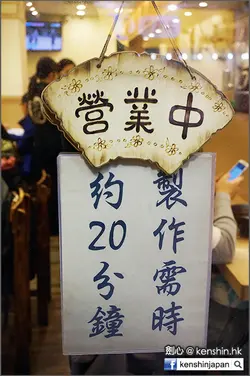 營業中
製作需時
約20分鐘
劍心 @ kenshin.hk
kenshinjapan